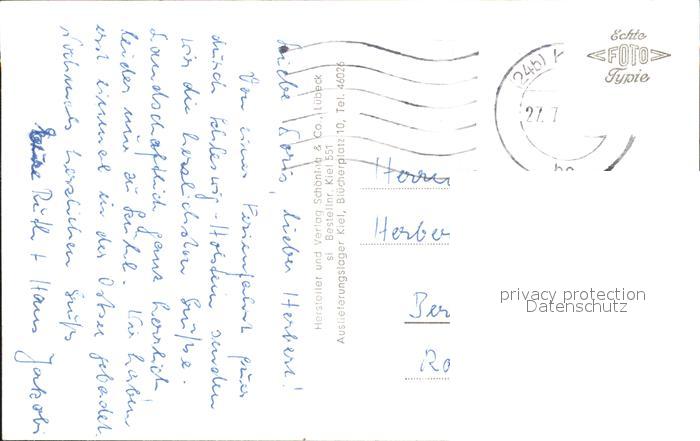 Liebe Doris, lieber Herbert!
Von einer Ferienfahrt quer
durch Schleswig-Holstein senden
wir die herzlichsten Grüße.
Landschaftlich ganz herrlich,
leider nur zu kühl. Wir haben
erst einmal in der Ostsee gebadet.
Nochmals herzlichen Gruß
Eure Ruth + Hans Jakobi
Hersteller und Verlag Schöning & Co., Lübeck
sl Bestellnr. Kiel 551
Auslieferungslager Kiel, Blücherplatz 10, Tel. 46026
(24b)
27.7
Echte
FOTO
Typie
Herrn
Herber
Ber
Ro
privacy protection
Datenschutz